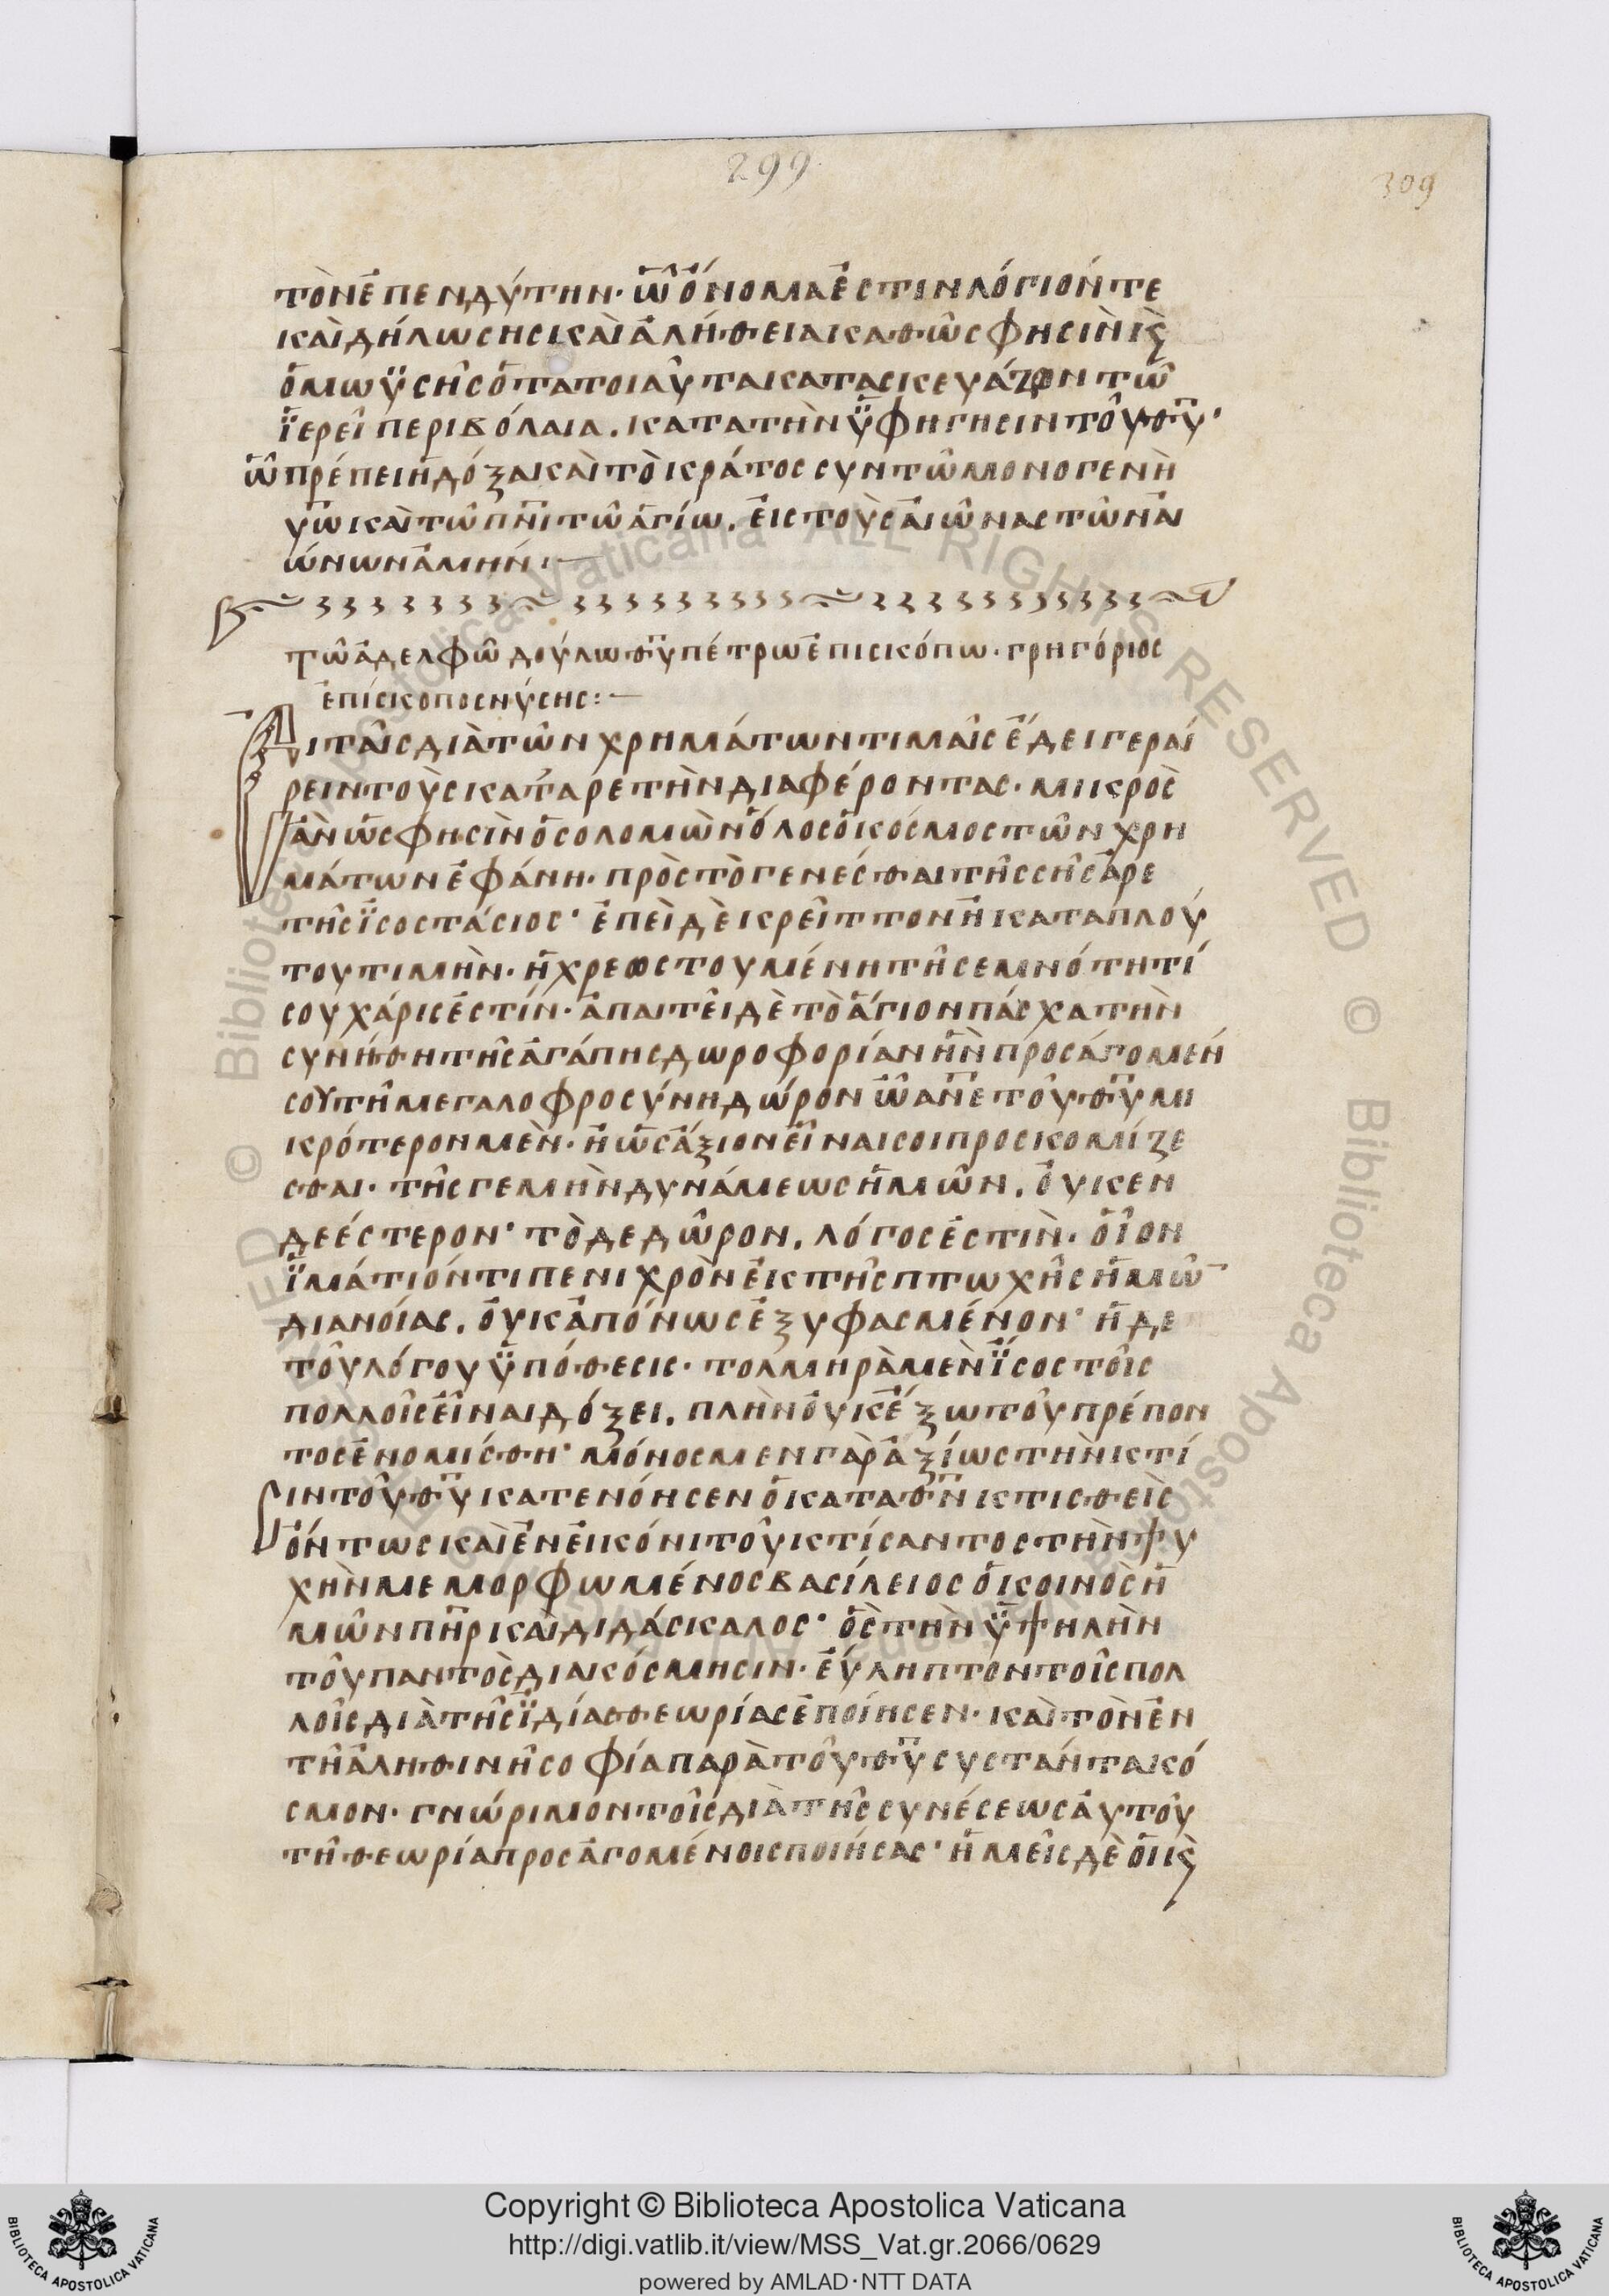 299
309
τὸν ἐπενδύτην· ὧ ὄνομα ἐστιν λόγιόν τε
καὶ δήλωσησ καὶ ἀλήθεια καθώσ φησιν κ(αὶ)
ὁ μωϋσῆσ ὁ τα τοιαῦτα κατασκευάζων τῶ
ἱερεῖ περιβόλαια. κατα τὴν ὑφήγησιν τοῦ θυ·
ὧ πρέπει ἡ δόξα καὶ τὸ κράτοσ συν τῶ μονογενὴ
υω καὶ τῶ πνι τῶ ἁγίω. εἰσ τοὺσ αἰῶνασ τῶν αἰ
ώνων ἀμήν:
τῶ ἀδελφῶ δούλω θυ πέτρω ἐπισκόπω. γρηγόριοσ
ἐπίσκοποσ νύσησ:
Ει ταῖσ διὰ τῶν χρημάτων τιμαῖσ ἔδει γεραί
ρειν τοὺσ κατ' ἀρετὴν διαφέροντασ· μικρὸσ
ἂν ὥσ φησὶν ὁ σολομὼν ὅλοσ ὁ κόσμοσ τῶν χρη
μάτων ἐφάνη· πρὸσ τὸ γενέσθαι τῆσ σῆσ ἀρε
τῆσ ἰσοστάσιοσ· ἐπεὶ δὲ κρεῖττον ἢ κατα πλού
του τιμὴν· ἡ χρεωστουμένη τῆ σεμνότητί
σου χάρισ ἐστίν· ἀπαιτεῖ δὲ τὸ ἅγιον πάσχα τὴν
συνήθη τῆσ ἀγάπησ δωροφορίαν ἣν προσάγομέν
σου τῆ μεγαλοφροσύνη δώρον ὦ ανε τοῦ θυ μι
κρότερον μὲν· ἢ ὡσ ἄξιον εἶναι σοι προσκομίζε
σθαι· τῆσ γε μὴν δυνάμεωσ ἡμῶν. οὐκ ἐν
δεέστερον· τὸ δε δῶρον. λόγοσ ἐστὶν· οἷον
ἱμάτιόν τι πενιχρὸν ἐκ τῆσ πτωχῆσ ἡμῶ
διανοίασ. οὐκ ἀπόνωσ ἐξυφασμένον· ἡ δε
τοῦ λόγου ὑπόθεσισ· τολμηρὰ μὲν ἴσοσ τοῖσ
πολλοῖσ εἶναι δόξει. πλὴν οὐκ ἔξω τοῦ πρέπον
τοσ ἐνομίσθη· μόνοσ μεν γὰρ ἀξίωσ τὴν κτί
σιν τοῦ θυ κατενόησεν ὁ κατα θν κτισθεὶσ
ὄντωσ καὶ ἐν εἰκόνι τοῦ κτίσαντοσ τὴν ψυ
χὴν μεμορφωμένοσ βασίλειοσ ὁ κοινὸσ ἡ
μῶν πηρ καὶ διδάσκαλοσ· ὃσ τὴν ὑψηλὴν
τοῦ παντὸσ διακόσμησιν· εὔληπτον τοῖσ πολ
λοῖσ διὰ τῆσ ἰδίασ θεωρίασ ἐποίησεν· καὶ τὸν ἐν
τῆ ἀληθινῆ σοφία παρὰ τοῦ θυ συστάντα κό
σμον· γνώριμον τοῖσ διὰ τῆσ συνέσεωσ αὐτοῦ
τῆ θεωρία προσαγομένοισ ποιήσασ· ἡμεῖσ δὲ οἱ κ(αὶ)
© Biblioteca Apostolica Vaticana ALL RIGHTS RESERVED
Copyright © Biblioteca Apostolica Vaticana
http://digi.vatlib.it/view/MSS_Vat.gr.2066/0629
powered by AMLAD·NTT DATA
BIBLIOTECA APOSTOLICA VATICANA
BIBLIOTECA APOSTOLICA VATICANA